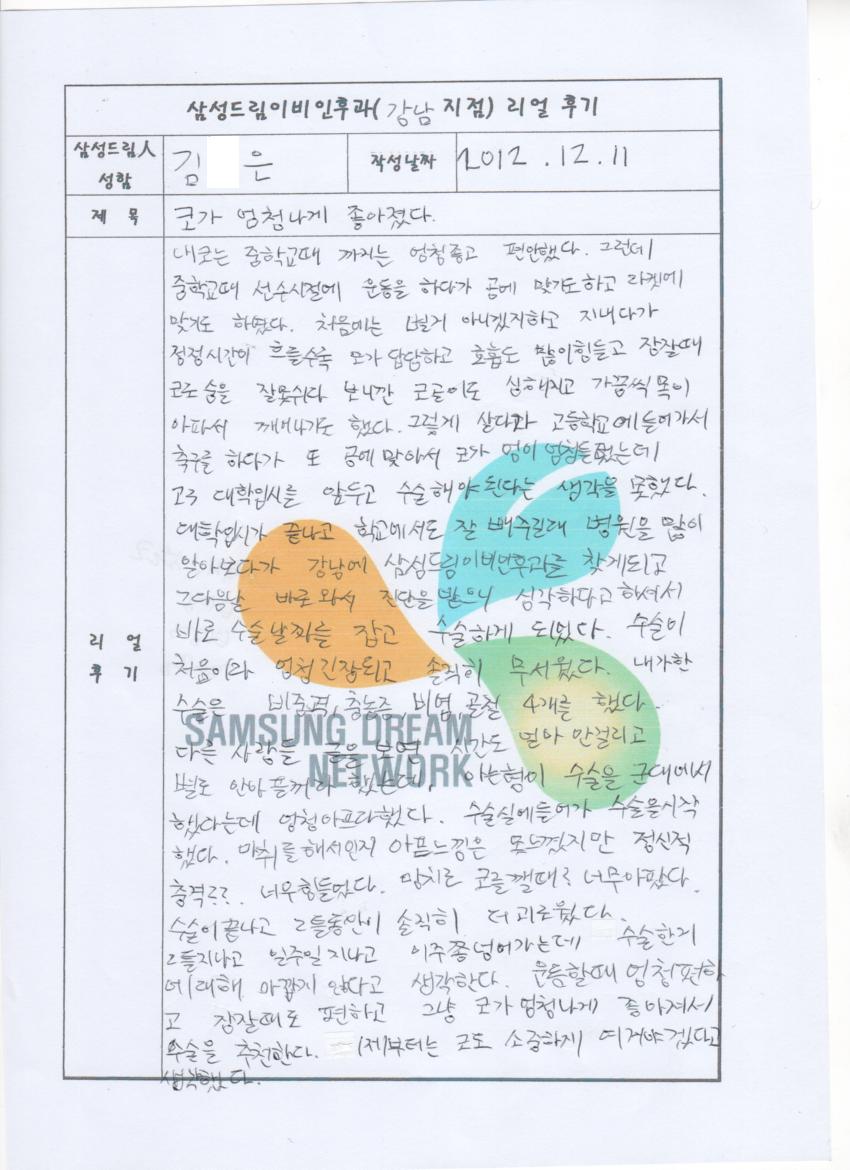 삼성드림이비인후과(강남 지점) 리얼 후기
삼성드림人 성함
김 은
작성날짜
2012.12.11
제 목
코가 엄청나게 좋아졌다.
리 얼 후 기
내코는 중학교때 까지는 엄청좋고 편안했다. 그런데
중학교때 선수시절에 운동을 하다가 공에 맞기도하고 라켓에
맞기도 하였다. 처음에는 별거 아니겠지하고 지내다가
점점시간이 흐를수록 코가 답답하고 호흡도 많이힘들고 잠잘때
코로 숨을 잘못쉬다 보니깐 코골이도 심해지고 가끔씩 목이
아파서 깨어나기도 했다. 그렇게 살다가 고등학교에들어가서
축구를 하다가 또 공에 맞아서 코가 엄청힘들었는데
고3 대학입시를 앞두고 수술해야된다는 생각을 못했다.
대학입시가 끝나고 학교에서도 잘 빼주길래 병원을 많이
알아보다가 강남에 삼성드림이비인후과를 찾게되고
그다음날 바로 와서 진단을 받으니 심각하다고 하셔서
바로 수술날짜를 잡고 수술하게 되었다. 수술이
처음이라 엄청긴장되고 솔직히 무서웠다. 내가한
수술은 비중격, 축농증, 비염, 골절 4개를 했다.
다른 사람들 글을 보면 시간도 얼마 안걸리고
별로 안아플꺼라 했는데, 아는형이 수술을 군대에서
했다는데 엄청아프다했다. 수술실에들어가 수술을시작
했다. 마취를 해서인지 아픈느낌은 못느꼈지만 정신적
충격?? 너무힘들었다. 망치로 코를깰때? 너무아팠다.
수술이 끝나고 2틀동안이 솔직히 더 괴로웠다.
2틀지나고 일주일 지나고 이주쯤넘어가는데 수술한거
에대해 아깝지 않다고 생각한다. 운동할때 엄청편하
고 잠잘때도 편하고 그냥 코가 엄청나게 좋아져서
수술을 추천한다. 이제부터는 코도 소중하게 여겨야겠다고
생각했다.
SAMSUNG DREAM
NETWORK